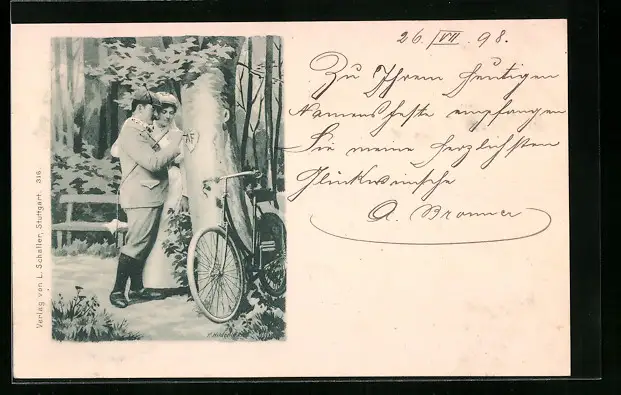 26./VII. 98.
Zu Ihrem heutigen
Namensfeste empfangen
Sie meine herzlichsten
Glückwünsche
A. Bronner
Verlag von L. Schaller, Stuttgart. 316